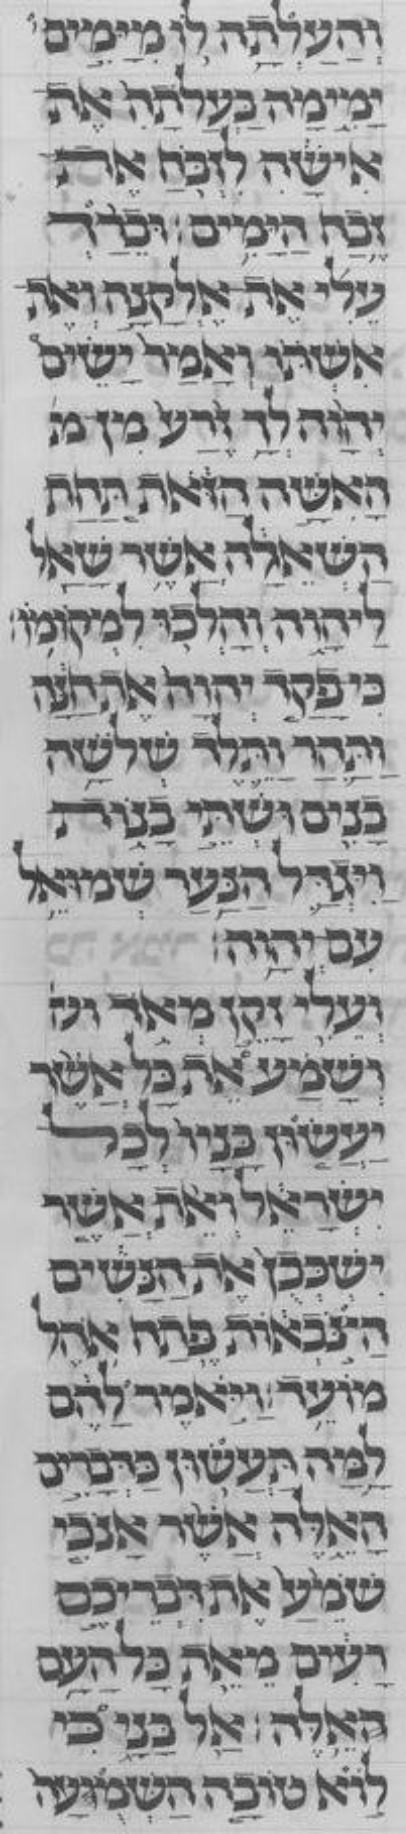 וְהַעַלְתָה לוֹ מִיָּמִים
יָמִימָה בַּעֲלֹתָהּ אֶת
אִישָׁהּ לִזְבֹּחַ אֶת
זֶבַח הַיָּמִים׃ וּבֵרַךְ
עֵלִי אֶת אֶלְקָנָה וְאֶת
אִשְׁתּוֹ וְאָמַר יָשֵׂם
יְהוָה לְךָ זֶרַע מִן מ
הָאִשָּׁה הַזֹּאת תַּחַת
הַשְּׁאֵלָה אֲשֶׁר שָׁאַל
לַיהוָה וְהָלְכוּ לִמְקוֹמוֹ׃
כִּי פָקַד יְהוָה אֶת חַנָּה
וַתַּהַר וַתֵּלֶד שְׁלֹשָׁה
בָנִים וּשְׁתֵּי בָנוֹת
וַיִּגְדַּל הַנַּעַר שְׁמוּאֵל
עִם יְהוָה׃
וְעֵלִי זָקֵן מְאֹד וש
וְשָׁמַע אֵת כָּל אֲשֶׁר
יַעֲשׂוּן בָּנָיו לְכָל
יִשְׂרָאֵל וְאֵת אֲשֶׁר
יִשְׁכְּבֻן אֶת הַנָּשִׁים
הַצֹּבְאוֹת פֶּתַח אֹהֶל
מוֹעֵד׃ וַיֹּאמֶר לָהֶם
לָמָּה תַעֲשׂוּן כַּדְּבָרִים
הָאֵלֶּה אֲשֶׁר אָנֹכִי
שֹׁמֵעַ אֶת דִּבְרֵיכֶם
רָעִים מֵאֵת כָּל הָעָם
הָאֵלֶּה׃ אַל בָּנָי כִּי
לוֹא טוֹבָה הַשְּׁמֻעָה